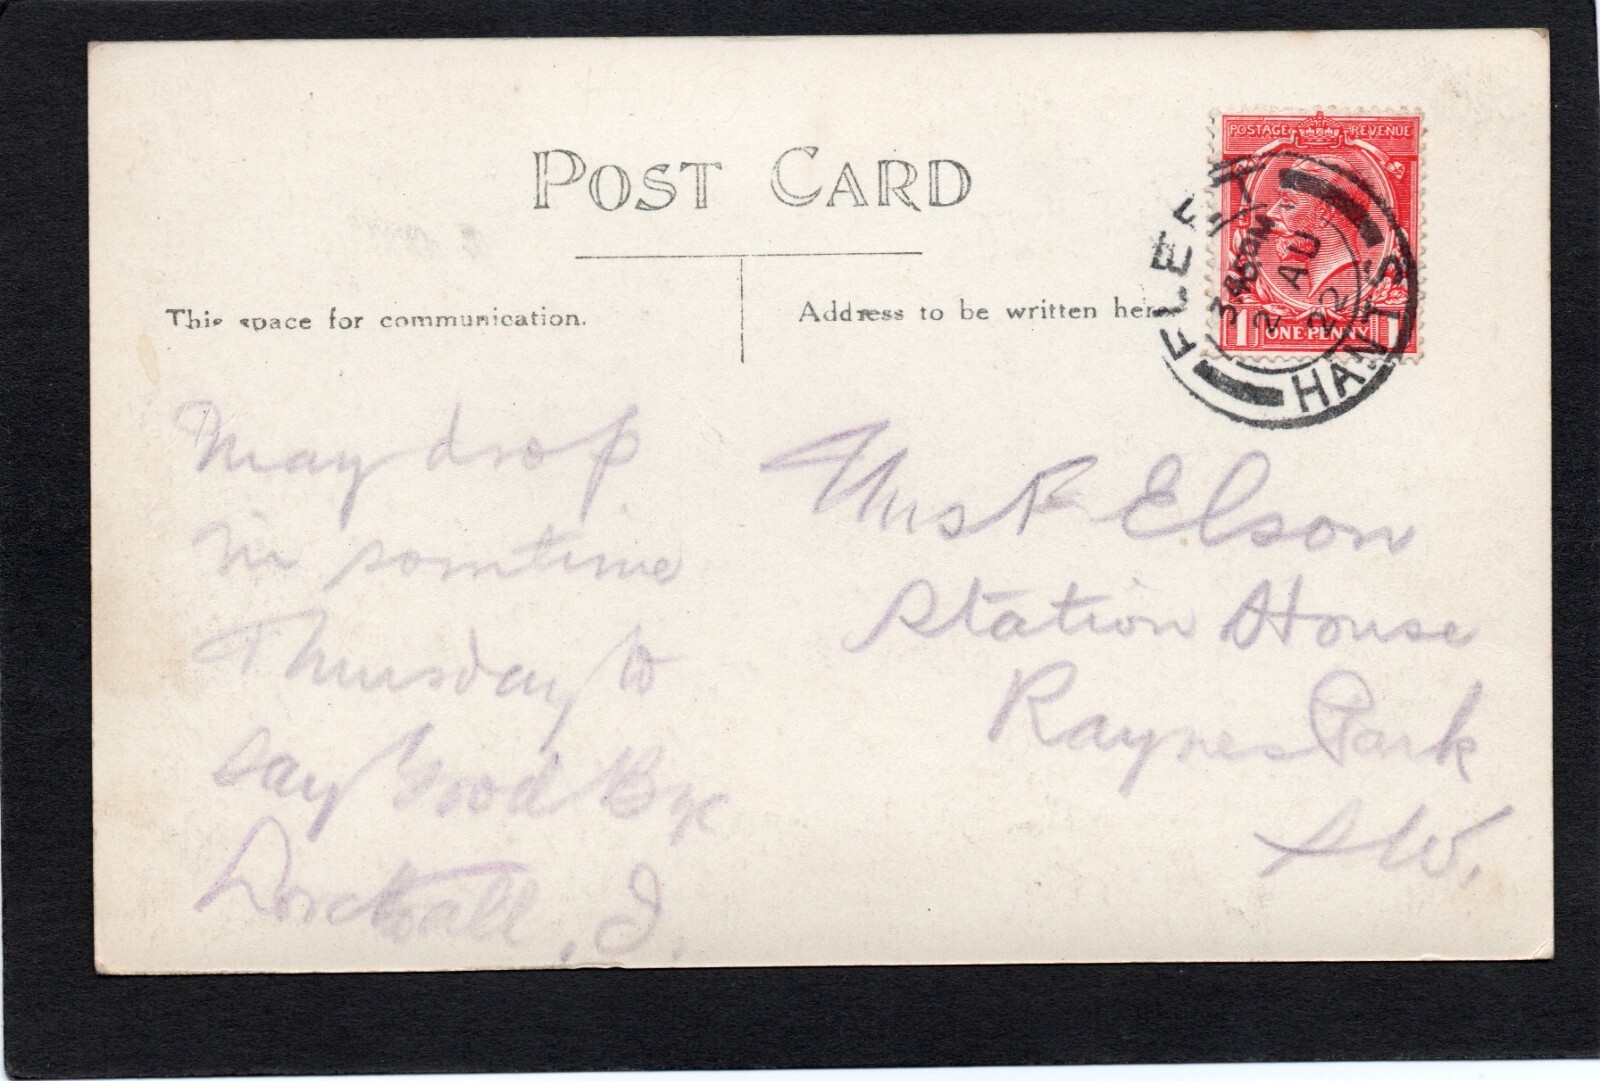 POST CARD
POSTAGE REVENUE
1 ONE PENNY 1
FLEET
3 45PM
2 AU
22
HANTS
This space for communication.
Address to be written here
May drop
in somtime
Thursday to
say Good Bye
Love to all, J.
Mrs F Elson
Station House
Raynes Park
S W.